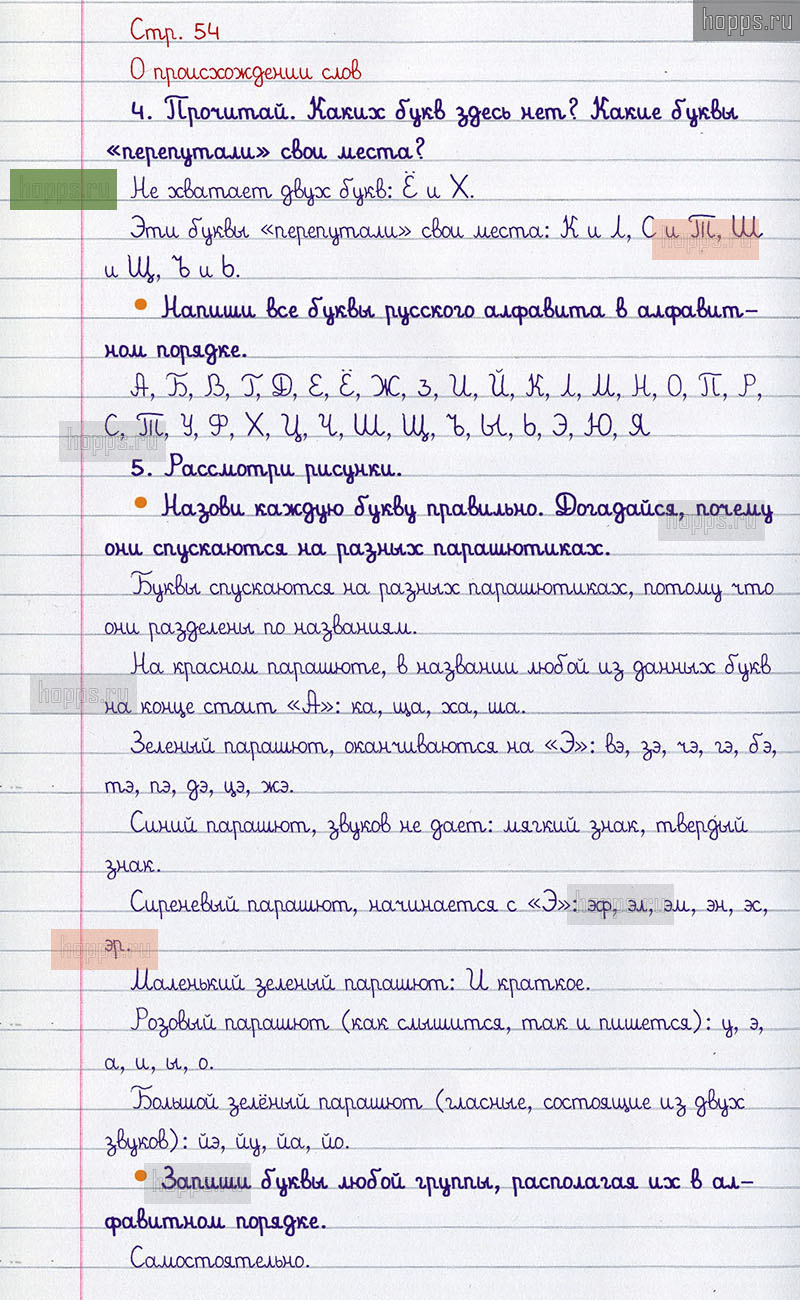 hopps.ru
Стр. 54
О происхождении слов
4. Прочитай. Каких букв здесь нет? Какие буквы
«перепутали» свои места?
hopps.ru
Не хватает двух букв: Ё и Х.
Эти буквы «перепутали» свои места: К и Л, С и Т, Ш
hopps.ru
и Щ, Ъ и Ь.
• Напиши все буквы русского алфавита в алфавит-
ном порядке.
А, Б, В, Г, Д, Е, Ё, Ж, З, И, Й, К, Л, М, Н, О, П, Р,
С, Т, У, Ф, Х, Ц, Ч, Ш, Щ, Ъ, Ы, Ь, Э, Ю, Я
hopps.ru
5. Рассмотри рисунки.
• Назови каждую букву правильно. Догадайся, почему
hopps.ru
они спускаются на разных парашютиках.
Буквы спускаются на разных парашютиках, потому что
они разделены по названиям.
На красном парашюте, в названии любой из данных букв
hopps.ru
на конце стоит «А»: ка, ща, ха, ша.
Зеленый парашют, оканчиваются на «Э»: вэ, зэ, чэ, гэ, бэ,
тэ, пэ, дэ, цэ, жэ.
Синий парашют, звуков не дает: мягкий знак, твердый
знак.
Сиреневый парашют, начинается с «Э»: эф, эл, эм, эн, эс,
hopps.ru
эр.
hopps.ru
Маленький зеленый парашют: И краткое.
Розовый парашют (как слышится, так и пишется): у, э,
а, и, ы, о.
Большой зелёный парашют (гласные, состоящие из двух
звуков): йэ, йу, йа, йо.
• Запиши буквы любой группы, располагая их в ал-
hopps.ru
фавитном порядке.
Самостоятельно.